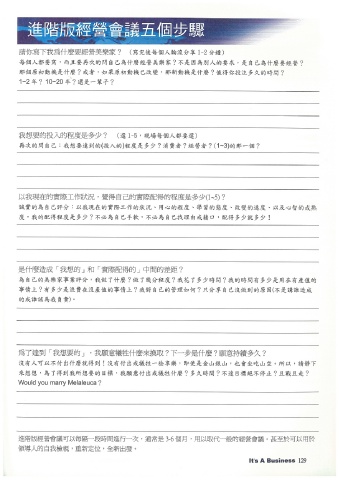 進階版經營會議五個步驟
請你寫下我為什麼要經營美樂家？（寫完後每個人輪流分享1-2分鐘）
每個人都要寫，而且要再次的問自己為什麼經營美樂家？不是因為別人的要求，是自己為什麼要經營？
那個原始動機是什麼？或者，如果原始動機已改變，那新動機是什麼？值得你投注多久的時間？
1~2年？10~20年？還是一輩子？
我想要的投入的程度是多少？（選1-5，現場每個人都要選）
再次的問自己：我想要達到的(投入的)程度是多少？消費者？經營者？(1~3)的那一個？
以我現在的實際工作狀況，覺得自己的實際配得的程度是多少(1~5)？
誠實的為自己評分：以我現在的實際工作的狀況，用心的程度、學習的態度、改變的速度、以及心智的成熟
度，我的配得程度是多少？不必為自己手軟，不必為自己找理由或藉口，配得多少就多少！
是什麼造成「我想的」和「實際配得的」中間的差距？
為自己的美樂家事業評分，我做了什麼？做了幾分程度？我花了多少時間？我的時間有多少是用在有產值的
事情上？有多少是浪費在沒產值的事情上？我對自己的管理如何？只分享自己造做到的原因(不是講條造成
的或講誰為我負責)。
為了達到「我想要的」，我願意犧牲什麼來換取？下一步是什麼？願意持續多久？
沒有人可以不付出什麼就得到！沒有付出或犧牲一些享樂，即使是金山銀山，也會坐吃山空。所以，請靜下
來想想，為了得到我所想要的目標，我願意付出或犧牲什麼？多久時間？不達目標絕不停止？且戰且走？
Would you marry Melaleuca？
進階版經營會議可以每隔一段時間進行一次，通常是3-6個月，用以取代一般的經營會議。甚至於可以用於
領導人的自我檢視，重新定位，全新出發。
It's A Business 129